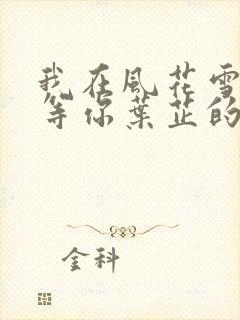 我在風花雪
等你葉芷的
金科